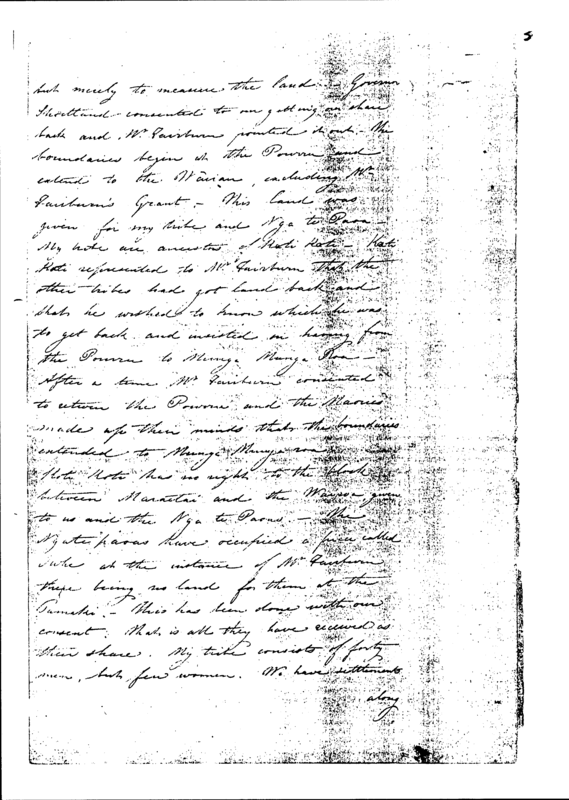 5
but merely to measure the land. Governor
Shortland consented to our getting our share
back and Mr Fairburn pointed it out. The
boundaries begin at the Powra and
extend to the Wairua, excluding Mr
Fairburn's Grant – This land was
given for my tribe and Nga te Paoa –
My tribe are ancestors of Hote Hote –
Hote represented to Mr Fairburn that the
other tribes had got land back and
that he wished to know which he was
to get back and insisted on having from
the Powra to Munga Munga Roa –
After a time Mr Fairburn consented
to return the Powra and the Maories
made up their minds that the boundaries
extended to Munga Munga roa
Hote Hote has no right to the block
between Maraetai and the Wairoa given
to us and the Nga te Paoas – The
Ngatepaoas have occupied a piece called
at the instance of Mr Fairburn
there being no land for them at the
Tamaki – This has been done with our
consent. That is all they have received as
their share. My tribe consists of forty
men, but few women. We have settlements
along